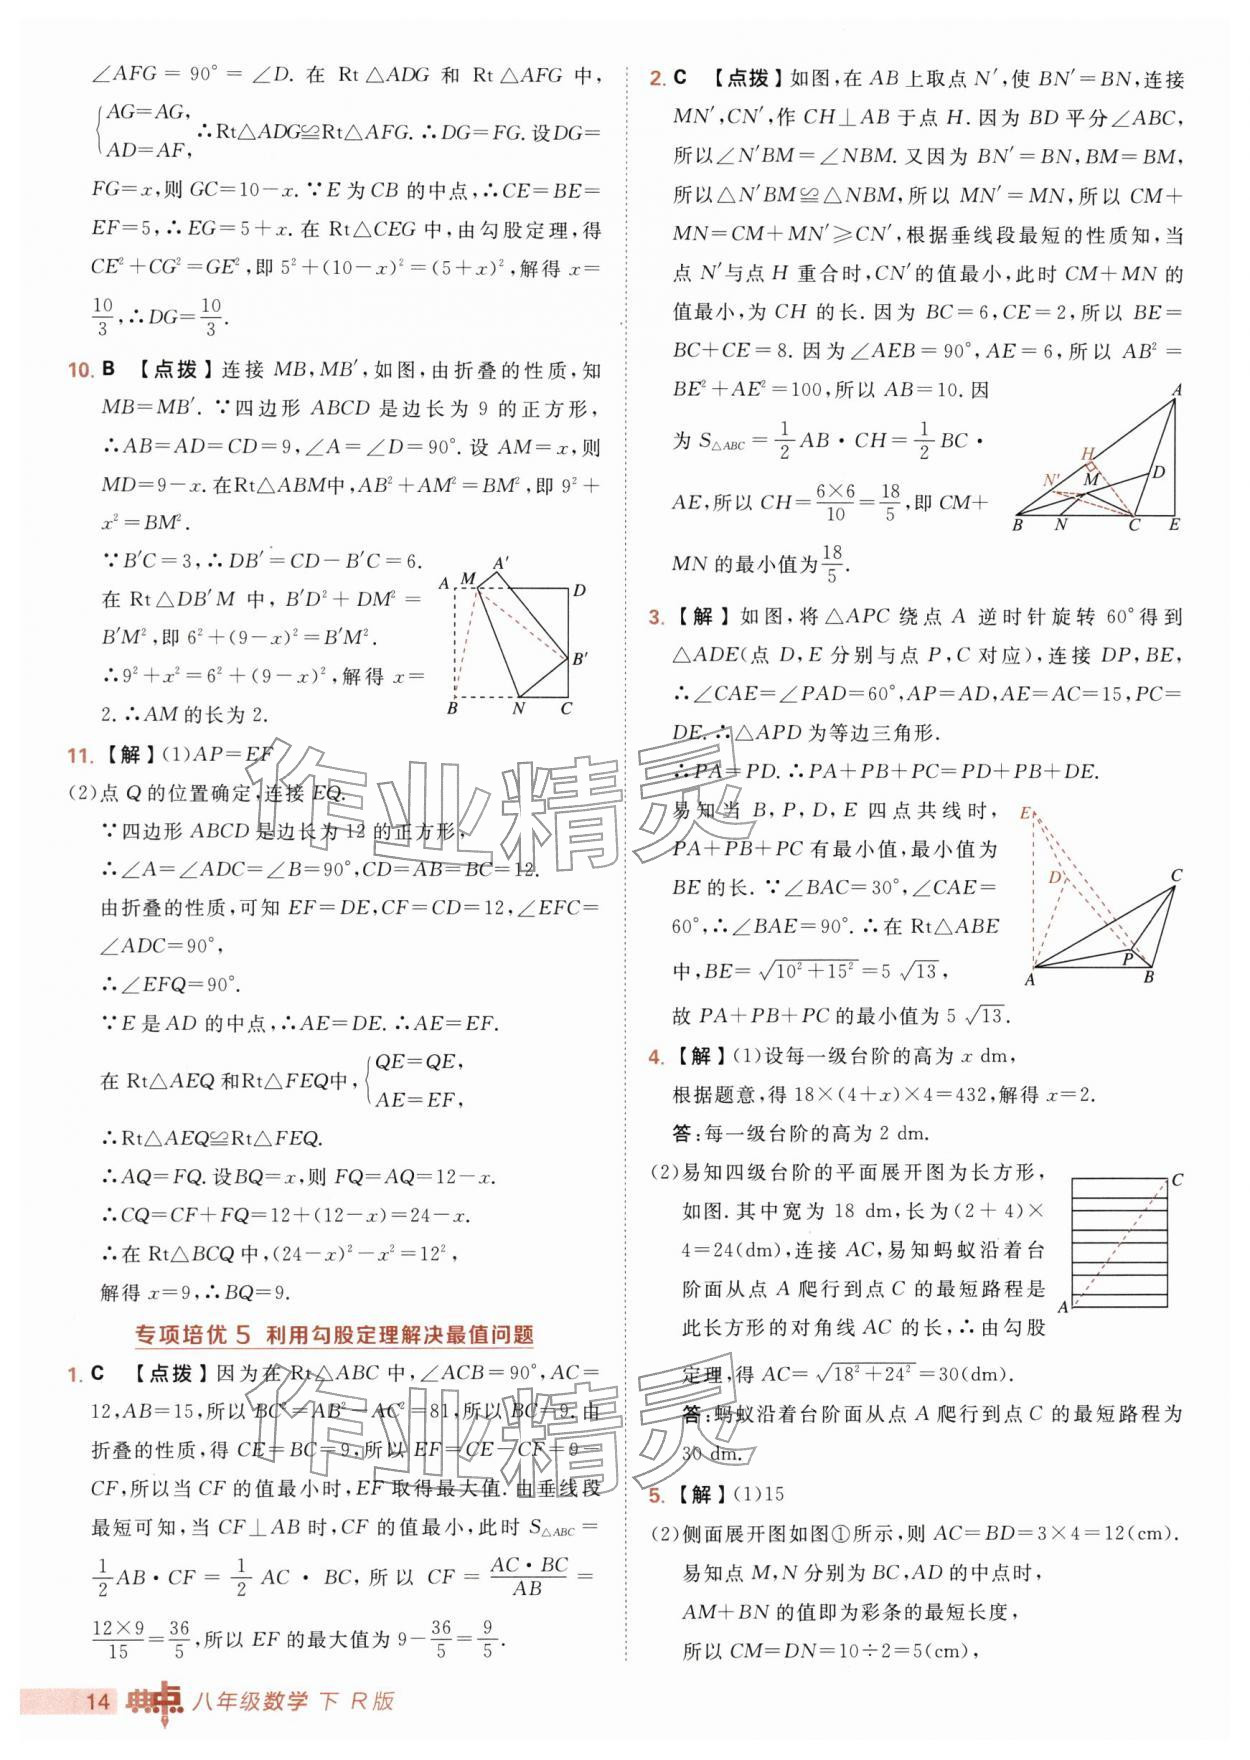 ∠AFG=90°=∠D. 在 Rt△ADG 和 Rt△AFG 中，
{AG=AG,
AD=AF, ∴Rt△ADG≌Rt△AFG. ∴DG=FG. 设DG=
FG=x,则 GC=10-x. ∵E 为 CB 的中点,∴CE=BE=
EF=5,∴EG=5+x. 在 Rt△CEG 中,由勾股定理,得
CE²+CG²=GE²,即 5²+(10-x)²=(5+x)²,解得 x=
10/3,∴DG=10/3.
10. B 【点拨】连接 MB,MB′,如图,由折叠的性质,知
MB=MB′. ∵四边形 ABCD 是边长为 9 的正方形,
∴AB=AD=CD=9,∠A=∠D=90°. 设 AM=x,则
MD=9-x. 在Rt△ABM中,AB²+AM²=BM²,即 9²+
x²=BM².
∵B′C=3,∴DB′=CD-B′C=6.
在 Rt△DB′M 中,B′D²+DM²=
B′M²,即 6²+(9-x)²=B′M².
∴9²+x²=6²+(9-x)²,解得 x=
2. ∴AM 的长为 2.
A M A′ D
B′
B N C
11. 【解】(1)AP=EF
(2)点 Q 的位置确定,连接 EQ.
∵四边形 ABCD 是边长为 12 的正方形,
∴∠A=∠ADC=∠B=90°,CD=AB=BC=12.
由折叠的性质,可知 EF=DE,CF=CD=12,∠EFC=
∠ADC=90°,
∴∠EFQ=90°.
∵E 是 AD 的中点,∴AE=DE. ∴AE=EF.
在 Rt△AEQ 和Rt△FEQ中, {QE=QE,
AE=EF,
∴Rt△AEQ≌Rt△FEQ.
∴AQ=FQ. 设BQ=x,则 FQ=AQ=12-x.
∴CQ=CF+FQ=12+(12-x)=24-x.
∴在 Rt△BCQ 中,(24-x)²-x²=12²,
解得 x=9,∴BQ=9.
专项培优 5 利用勾股定理解决最值问题
1. C 【点拨】因为在 Rt△ABC 中,∠ACB=90°,AC=
12,AB=15,所以 BC²=AB²-AC²=81,所以 BC=9. 由
折叠的性质,得 CE=BC=9,所以 EF=CE-CF=9-
CF,所以当 CF 的值最小时,EF 取得最大值. 由垂线段
最短可知,当 CF⊥AB 时,CF 的值最小,此时 S△ABC=
1/2 AB·CF=1/2 AC·BC,所以 CF=AC·BC/AB=
12×9/15=36/5,所以 EF 的最大值为 9-36/5=9/5.
2. C 【点拨】如图,在 AB 上取点 N′,使 BN′=BN,连接
MN′,CN′,作 CH⊥AB 于点 H. 因为 BD 平分∠ABC,
所以∠N′BM=∠NBM. 又因为 BN′=BN,BM=BM,
所以△N′BM≌△NBM,所以 MN′=MN,所以 CM+
MN=CM+MN′≥CN′,根据垂线段最短的性质知,当
点 N′与点 H 重合时,CN′的值最小,此时 CM+MN 的
值最小,为 CH 的长. 因为 BC=6,CE=2,所以 BE=
BC+CE=8. 因为∠AEB=90°,AE=6,所以 AB²=
BE²+AE²=100,所以 AB=10. 因
为 S△ABC=1/2 AB·CH=1/2 BC·
AE,所以 CH=6×6/10=18/5,即 CM+
MN 的最小值为18/5.
A
H
N′ M D
B N C E
3. 【解】如图,将△APC 绕点 A 逆时针旋转 60°得到
△ADE(点 D,E 分别与点 P,C 对应),连接 DP,BE,
∴∠CAE=∠PAD=60°,AP=AD,AE=AC=15,PC=
DE. ∴△APD 为等边三角形.
∴PA=PD. ∴PA+PB+PC=PD+PB+DE.
易知当 B,P,D,E 四点共线时,
PA+PB+PC 有最小值,最小值为
BE 的长. ∵∠BAC=30°,∠CAE=
60°,∴∠BAE=90°. ∴在 Rt△ABE
中,BE=√(10²+15²)=5√13,
故 PA+PB+PC 的最小值为 5√13.
E
D C
P
A B
4. 【解】(1)设每一级台阶的高为 x dm,
根据题意,得 18×(4+x)×4=432,解得 x=2.
答:每一级台阶的高为 2 dm.
(2)易知四级台阶的平面展开图为长方形,
如图. 其中宽为 18 dm,长为(2+4)×
4=24(dm),连接 AC,易知蚂蚁沿着台
阶面从点 A 爬行到点 C 的最短路程是
此长方形的对角线 AC 的长,∴由勾股
定理,得 AC=√(18²+24²)=30(dm).
答:蚂蚁沿着台阶面从点 A 爬行到点 C 的最短路程为
30 dm.
C
A
5. 【解】(1)15
(2)侧面展开图如图①所示,则 AC=BD=3×4=12(cm).
易知点 M,N 分别为 BC,AD 的中点时,
AM+BN 的值即为彩条的最短长度,
所以 CM=DN=10÷2=5(cm),
作业精灵
作业精灵
14 典点 八年级数学 下 R版